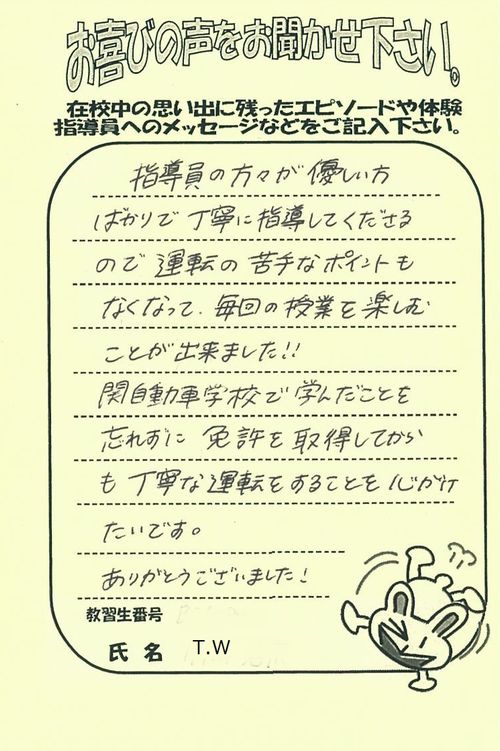 お喜びの声をお聞かせ下さい。
在校中の思い出に残ったエピソードや体験
指導員へのメッセージなどをご記入下さい。
指導員の方々が優しい方
ばかりで丁寧に指導してくださる
ので運転の苦手なポイントも
なくなって、毎回の授業を楽しむ
ことが出来ました!!
関自動車学校で学んだことを
忘れずに免許を取得してから
も丁寧な運転をすることを心がけ
たいです。
ありがとうございました!
教習生番号
氏名 T.W